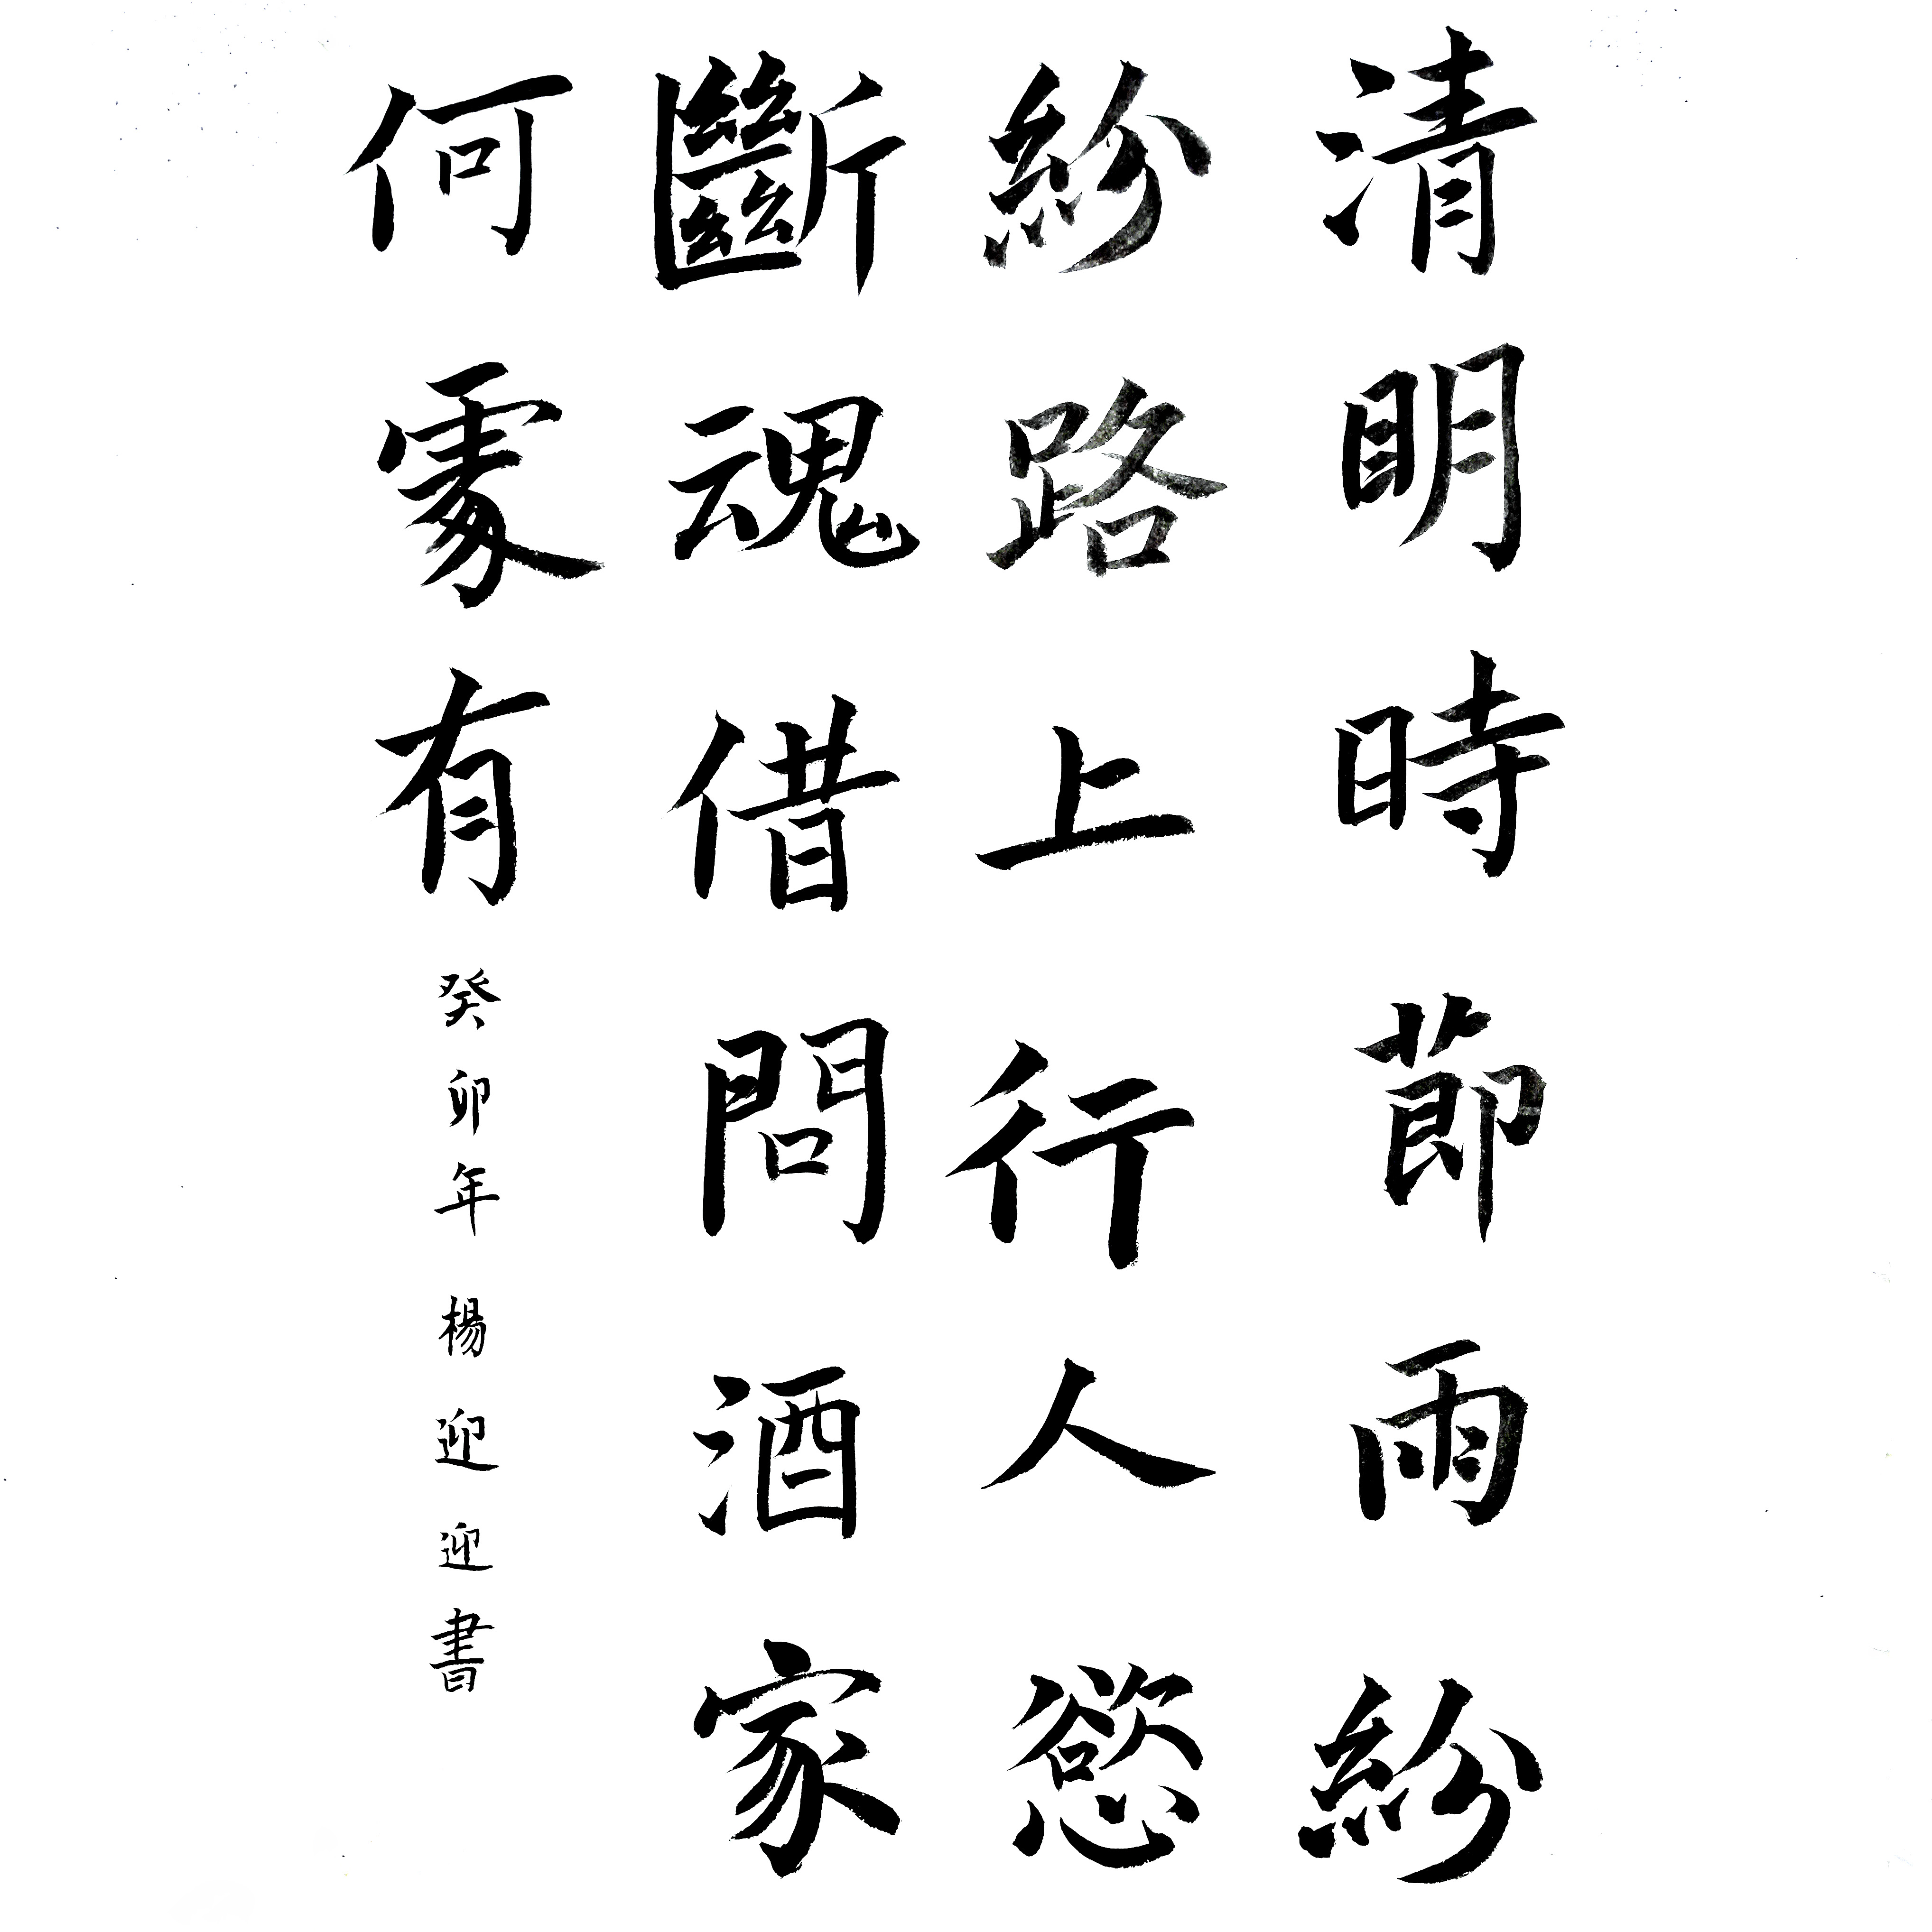 清明時節雨紛
紛路上行人慾
斷魂借問酒家
何處有 癸卯年 楊迎迎書